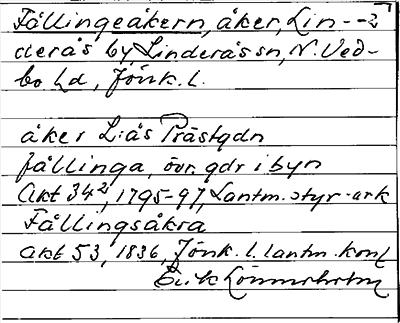 Fållingeåkern, åker, Lin-
derås by, Linderås sn, N. Ved-
bo hd, Jönk. l.
åker i L:ås Prästgdn
fållinga, övr. gdr i byn
Akt 34², 1795-97, Lantm.styr-ark
Fållingsåkra
akt 53, 1836, Jönk. l. lantm. kont
Erik Lönnerholm